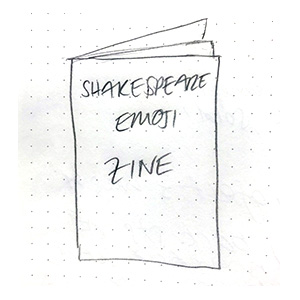 SHAKESPEARE
EMOJI
ZINE